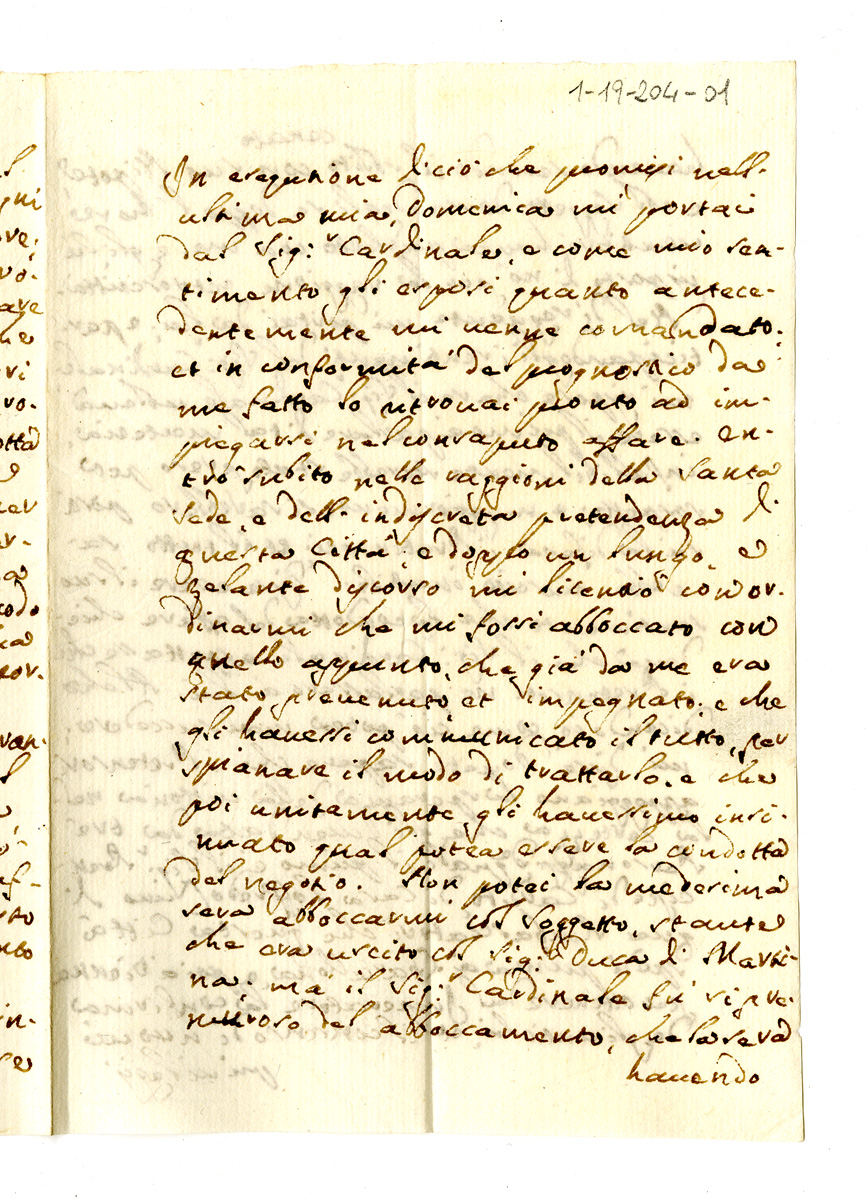 1-19-204-01
In esequtione di ciò che promisi nell.
ultima mia, Domenica mi portai
dal Sig:r Cardinale, e come mio sen-
timento gli esposi quanto antece-
dentemente mi uenne comandato:
et in conformità del prognostico da
me fatto lo ritrouai pronto ad im-
piegarsi nel consaputo affare. en-
trò subito nelle raggioni della Santa
Sede, e dell. indiscreta pretendenza di
questa Città; e doppo un lungo, e
zelante discorso mi licentiò con or-
dinarmi che mi fossi abboccato con
quello appunto, che già da me era
stato preuenuto et impegnato; e che
gli hauessi communicato il tutto, per
spianare il modo di trattarlo. e che
poi unitamente gli hauessimo insi-
nuato qual potea essere la condotta
del negotio. Non potei la medesima
sera abboccarmi col soggetto, stante
che era uscito col Sig:r Duca di Marti-
na; mà il Sig:r Cardinale fù si pre-
muroso del abboccamento, che la sera
hauendo